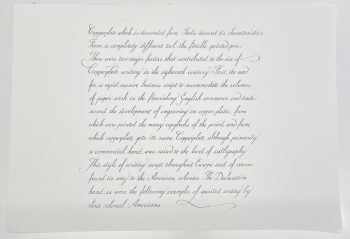 Copperplate, which is descended from Italic, derived its characteristics
From a completely different tool, the flexible pointed pen.
There were two major factors that contributed to the rise of
Copperplate writing in the eighteenth century: First, the need
for a rapid, cursive business script to accommodate the volumes
of paper work in the flourishing English commerce and trade;
second, the development of engraving on copper plates, from
which were printed the many copybooks of the period, and from
which copperplate gets its name. Copperplate, although primarily
a commercial hand, was raised to the level of calligraphy.
This style of writing swept throughout Europe and, of course,
found its way to the American colonies. The Declaration
hand, as were the following examples of spirited writing by
colonial Americans.